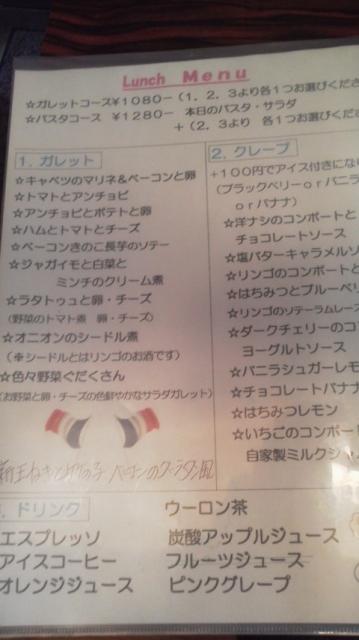 Lunch Menu
☆ガレットコース¥1080－（1．2．3より各1つお選びくださ
☆パスタコース ¥1280－ 本日のパスタ・サラダ
＋（2．3より 各1つお選びくださ
1．ガレット
☆キャベツのマリネ&ベーコンと卵
☆トマトとアンチョビ
☆アンチョビとポテトと卵
☆ハムとトマトとチーズ
☆ベーコンきのこ長芋のソテー
☆ジャガイモと白菜と
ミンチのクリーム煮
☆ラタトゥュと卵・チーズ
（野菜のトマト煮 卵・チーズ）
☆オニオンのシードル煮
（※シードルとはリンゴのお酒です）
☆色々野菜ぐだくさん
（お野菜と卵・チーズの色鮮やかなサラダガレット）
新玉ねぎと
ベーコンのグラタン風
2．クレープ
+100円でアイス付きにな
（ブラックベリーorバニラ
orバナナ）
☆洋ナシのコンポートと
チョコレートソース
☆塩バターキャラメルソ
☆リンゴのコンポートと
☆はちみつとブルーベリ
☆リンゴのソテーラムレーズ
☆ダークチェリーのコ
ヨーグルトソース
☆バニラシュガーレモ
☆チョコレートバナナ
☆はちみつレモン
☆いちごのコンポー
自家製ミルクジャ
ドリンク
エスプレッソ
アイスコーヒー
オレンジジュース
ウーロン茶
炭酸アップルジュース
フルーツジュース
ピンクグレープ